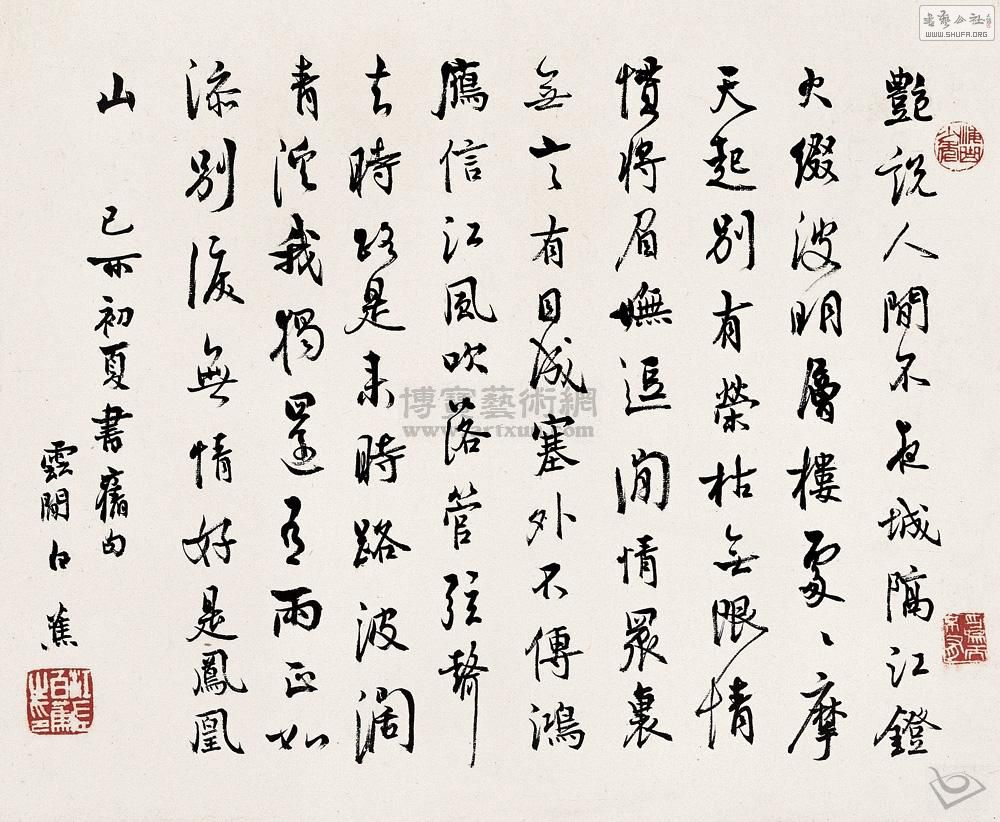 艷說人間不夜城隔江鐙
火綴波明層樓處〻摩
天起別有榮枯無限情
慣將眉嫵逗閒情眾裏
無言有目成塞外不傳鴻
鴈信江風吹落管弦聲
去時路是來時路波闊
青我獨還有雨正如
添別淚無情好是鳳凰
山
己卯初夏書舊句
雲間白蕉
書藝公社
WWW.SHUFA.ORG
博寶藝術網
www.artxun.com